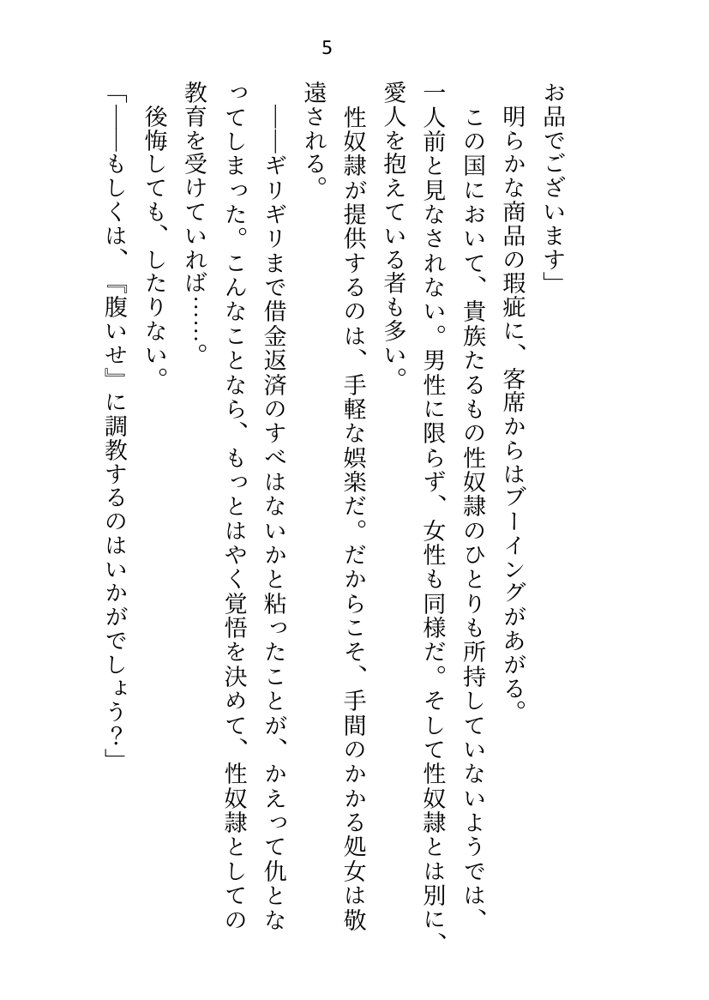 5
お品でございます」
　明らかな商品の瑕疵に、客席からはブーイングがあがる。
　この国において、貴族たるもの性奴隷のひとりも所持していないようでは、
一人前と見なされない。男性に限らず、女性も同様だ。そして性奴隷とは別に、
愛人を抱えている者も多い。
　性奴隷が提供するのは、手軽な娯楽だ。だからこそ、手間のかかる処女は敬
遠される。
　――ギリギリまで借金返済のすべはないかと粘ったことが、かえって仇とな
ってしまった。こんなことなら、もっとはやく覚悟を決めて、性奴隷としての
教育を受けていれば……。
　後悔しても、したりない。
「――もしくは、『腹いせ』に調教するのはいかがでしょう？」